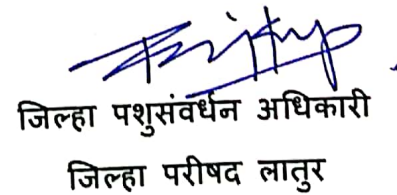 जिल्हा पशुसंवर्धन अधिकारी
जिल्हा परीषद लातुर